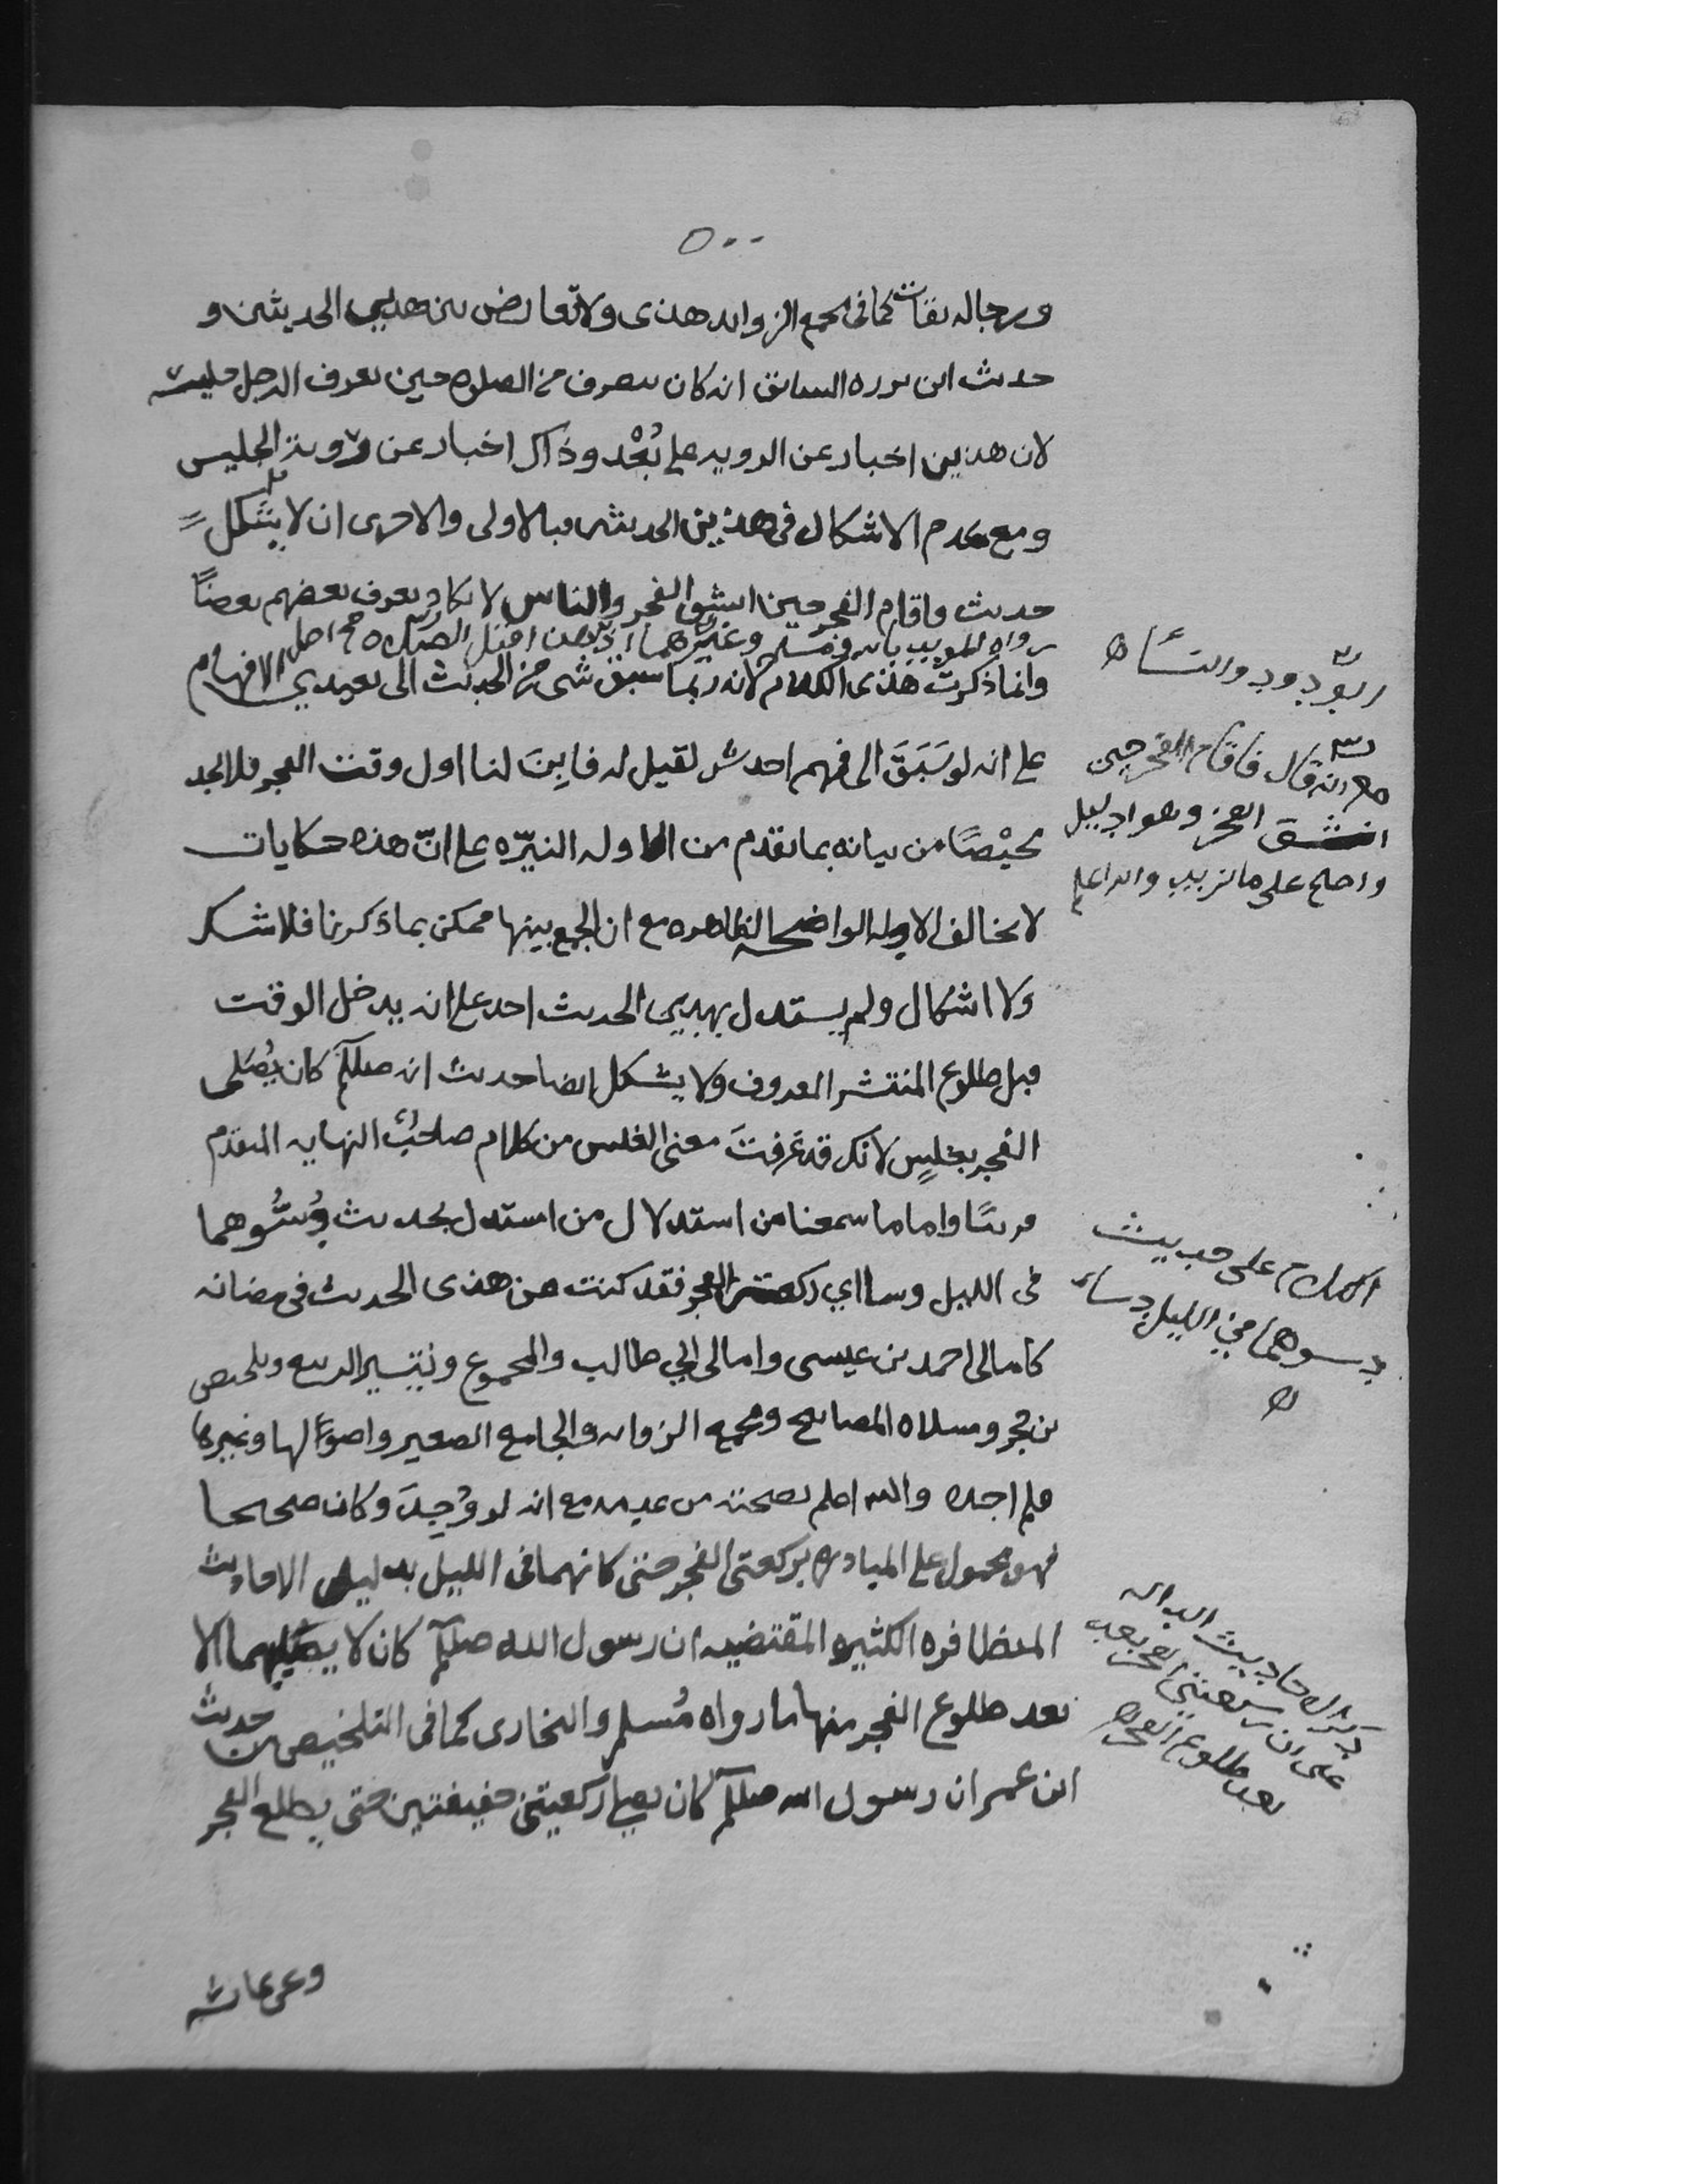 ٥٠٠
ورجاله ثقات كما في مجمع الزوايد هذى ولا تعارض بين هذين الحديثين و
حديث ابن برزه السابق انه كان ينصرف من الصلوه حين يعرف الرجل جليسه
لان هذين اخبار عن الرويه على بُعْد وذاك اخبار عن رؤية الجليس
ومع عدم الاشكال في هذين الحديثين فبالاولى والاحرى ان لا يشكل
حديث واقام الفجر حين انشق الفجر والناس لا يكاد يعرف بعضهم بعضاً
وانما ذكرت هذى الكلام لانه ربما سبق شي من الحديث الى بعيدي الافهام
على انه لو سَبَقَ الى فهم احد شي لقيل له فاَبِنَ لنا اول وقت الفجر فلا يجد
محيْصًا من بيانه بما تقدم من الادله النيّره على انّ هذه حكايات
لا تخالف الادله الواضحه الظاهره مع ان الجمع بينها ممكن بما ذكرنا فلا شك
ولا اشكال ولم يستدل بهذين الحديث احد على انه يدخل الوقت
قبل طلوع المنتشر المعروف ولا يشكل ايضا حديث انه صللم كان يُصَلى
الفجر بغلسٍ لانك قد عَرفتَ معنى الغلس من كلام صاحب النهايه المتقدم
قريبًا واما ما سمعنا من استدلال من استدل بحديث دُسُّوهما
في الليل دسا اي ركعتي الفجر فقد كنت عن هذى الحديث في مضانه
كامالى احمد بن عيسى وامالى ابي طالب والمجموع وتيسير الديبع وتلخيص
بن حجر ومشكاه المصابيح ومجمع الزوايد والجامع الصغير واصولها وغيرها
فلم اجده والله اعلم بصحته من عدمه مع انه لو وُجِدَ وكان صحيحا
فهو محمول على المبادره بركعتى الفجر حتى كانهما في الليل بدليل الاحاديث
المتظافره الكثيره المقتضيه ان رسول الله صللم كان لا يصليهما الا
بعد طلوع الفجر منها ما رواه مُسلم والبخارى كما في التلخيص من حديث
ابن عمر ان رسول الله صللم كان يصلي ركعتين خفيفتين حتى يطلع الفجر
وعن عائشه
ابو داود والنساء
مع انه قال فاقام الفجر حين
انشق الفجر وهو ادليل
واصلح على ما نريد والله اعلم
الكلام على حديث
دسوهما في الليل دسا
ذكر احاديث الداله
على ان ركعتي الفجر بعد
بعد طلوع الفجر